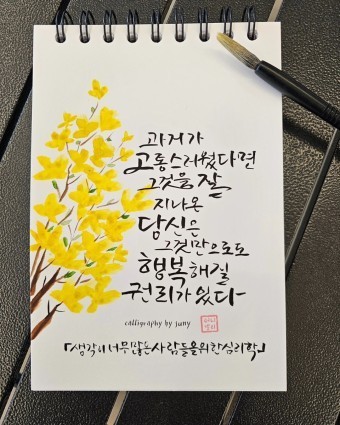 과거가
고통스러웠다면
그것을 잘
지나온
당신은
그것만으로도
행복해질
권리가 있다
calligraphy by juny
「생각이 너무 많은 사람들을 위한 심리학」